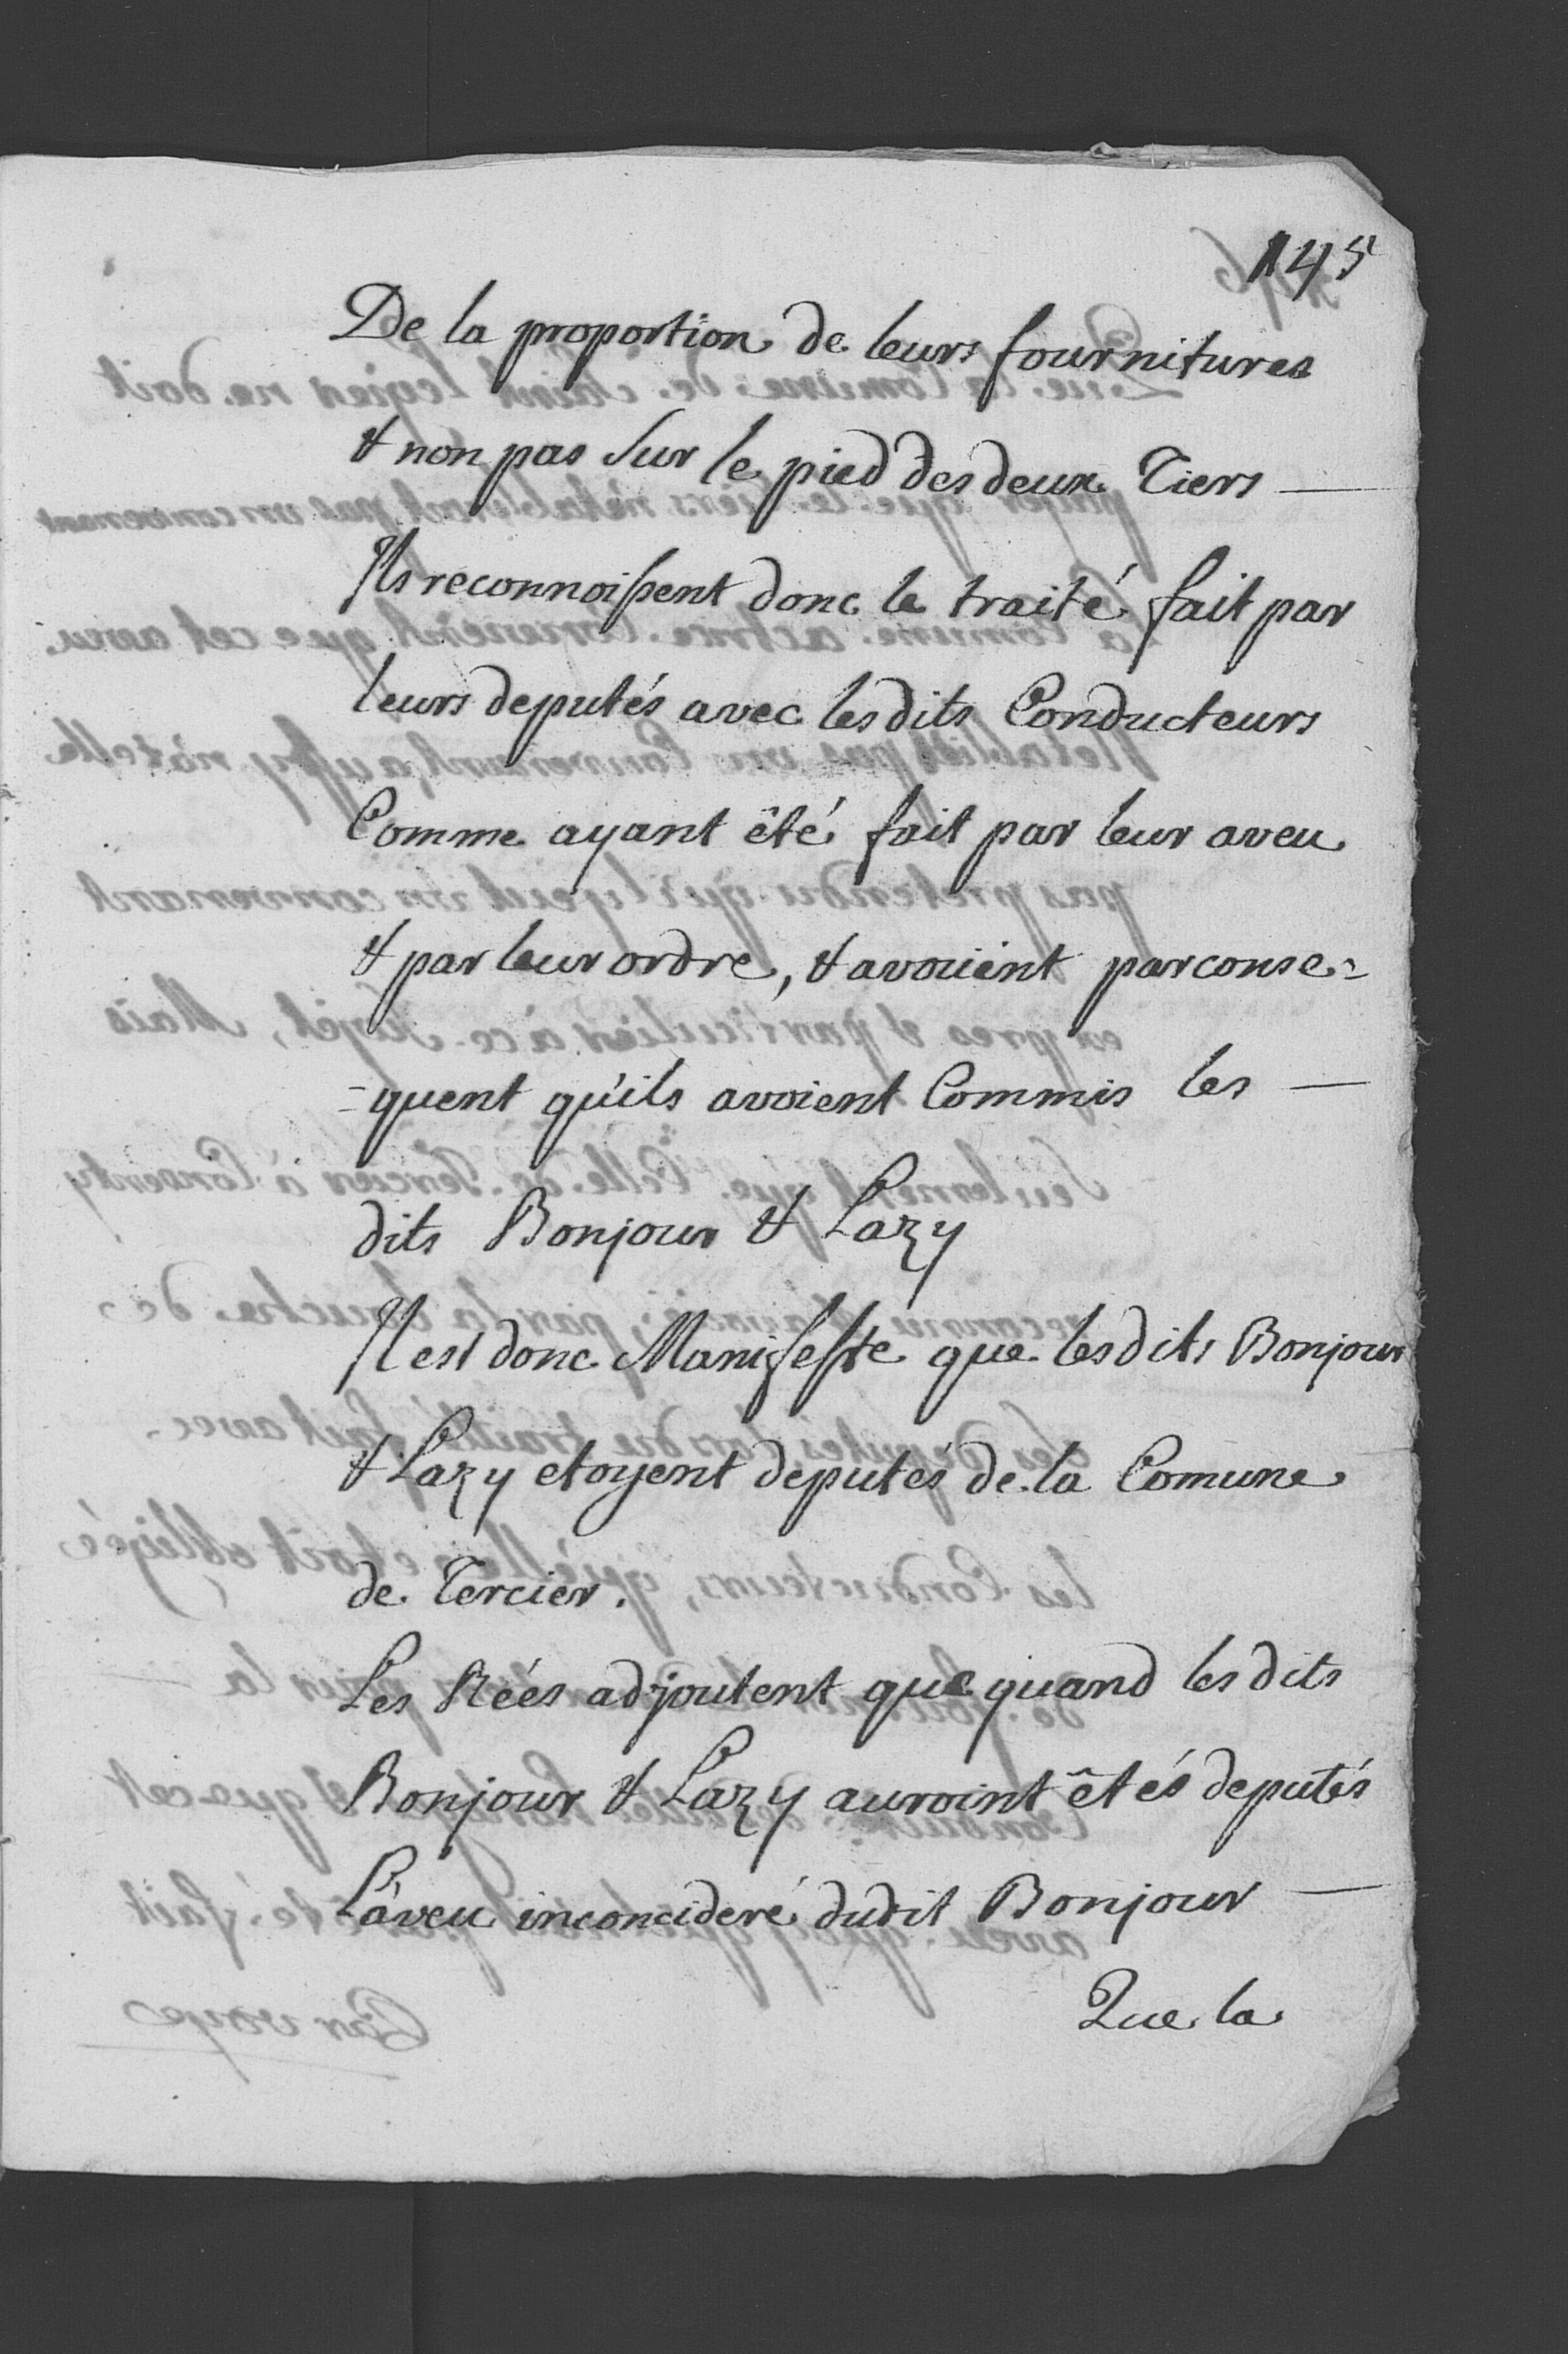 145
De la proportion de leurs fournitures
& non pas Sur le pied des deux Tiers —
Ils reconnoissent donc le traité fait par
leurs deputés avec lesdits Conducteurs
Comme ayant êté fait par leur aveu
& par leur ordre, & avouient par conse=
=quent qu'ils avoient Commis les —
dits Bonjour & Lazy
Il est donc Manifeste que lesdits Bonjour
& Lazy etoyent deputés de la Comune
de Tercier.
Les Réés adjoutent que quand les dits
Bonjour & Lazy auroint êtés deputés
L'aveu inconcideré dudit Bonjour —
Que la